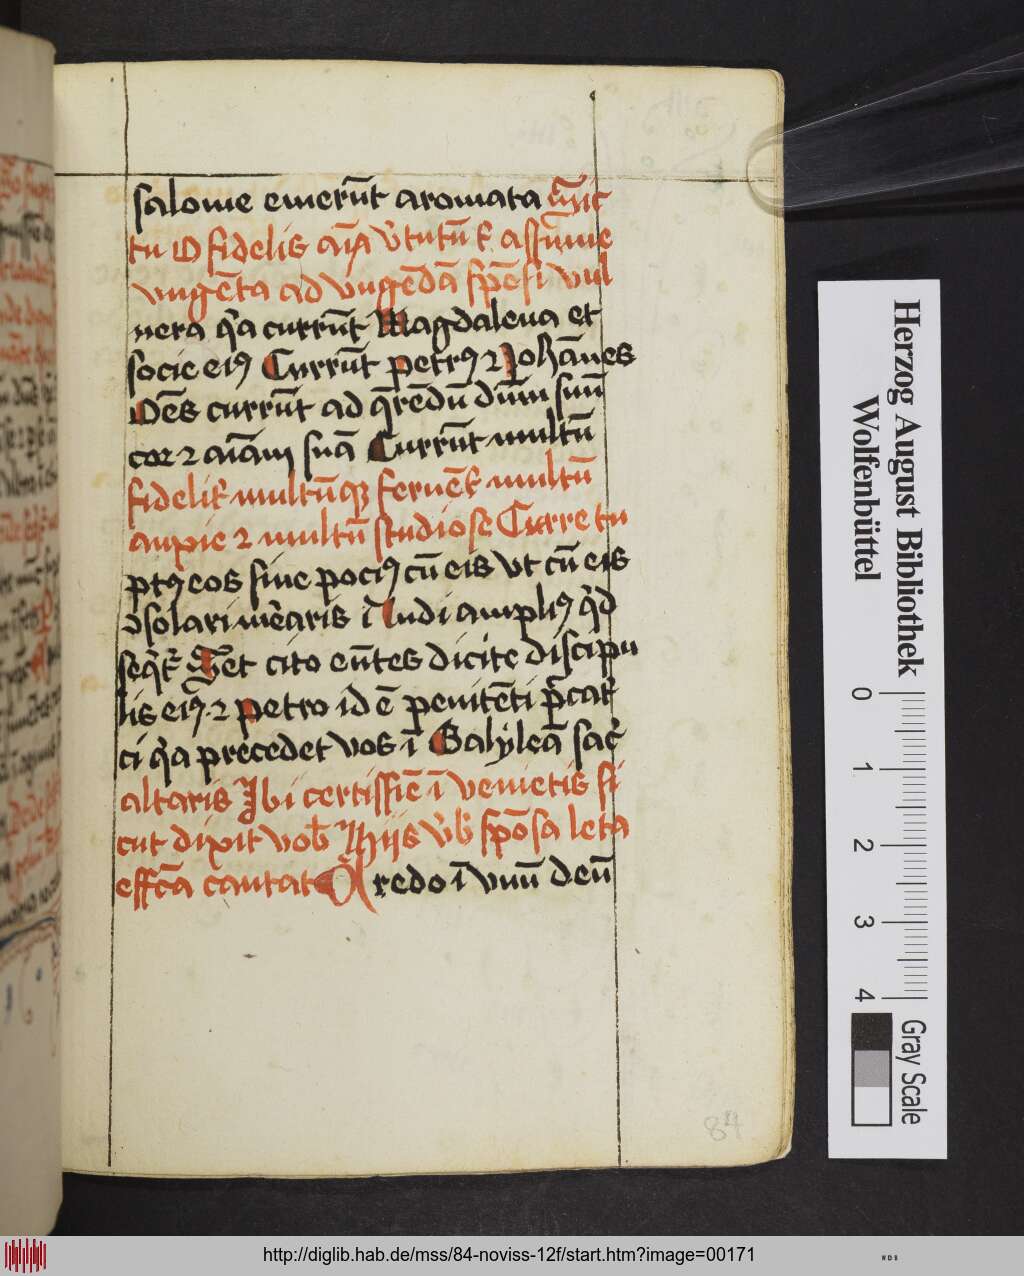 salome emerūt aromata
tu O fidelis aīa v̓tutū ⁊ assūme
vngēta ad vngēdā spōsi vul
nera q̓a currūt Magdalena et
socie eiꝰ Currūt petrꝰ ⁊ Johānes
Oēs currūt ad q̄rēdū dn̄m suū
cor ⁊ aīam suā Currūt multū
fidelit̓ multūqꝫ feruēt̓ multū
pie ⁊ multū studiose Curre tu
eos siue pociꝰ cū eis vt cū eis
ꝯsolari mēaris ī Audi ampliꝰ q̓d
seq̓t̓ et cito eūtes dicite discipu
lis eiꝰ ⁊ petro id ē penitēti
ci q̓a precedet vos ī Galyleā sac̓
altaris Ibi certissīe ī venietis si
cut dixit vob̓ Jhūs v̓b̓ spōsa leta
effc̄a cantat Credo ī vnū deū
84
Herzog August Bibliothek
Wolfenbüttel
0
1
2
3
4
Gray Scale
http://diglib.hab.de/mss/84-noviss-12f/start.htm?image=00171